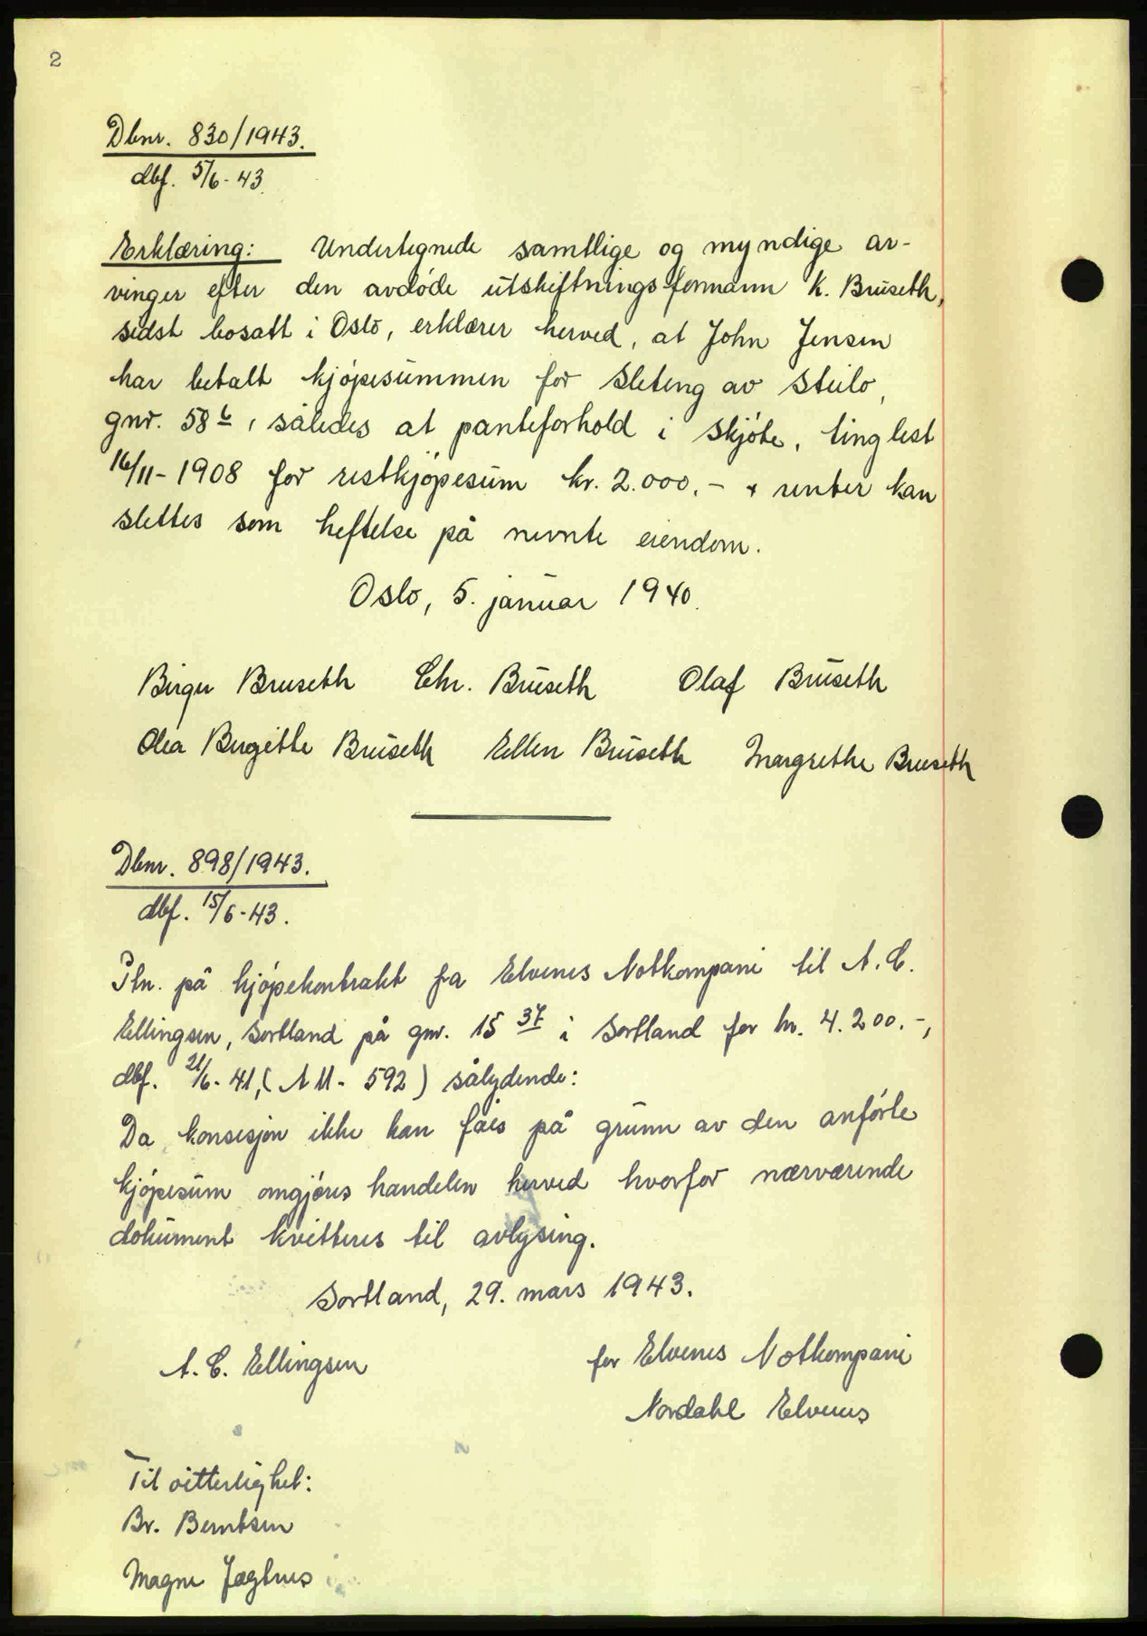 2
Dbnr. 830/1943.
dbf. 5/6-43.
Erklæring: Undertegnede samtlige og myndige ar-
vinger efter den avdøde utskiftningsformann K. Bruseth,
sidst bosatt i Oslo, erklærer herved, at John Jensen
har betalt kjøpesummen for Sleteng av Steilo,
gnr. 58 6, således at panteforhold i skjøte, tinglest
16/11-1908 for restkjøpesum kr. 2.000.- + renter kan
slettes som heftelse på nevnte eiendom.
Oslo, 5. januar 1940.
Birger Bruseth Chr. Bruseth Olaf Bruseth
Olea Birgitte Bruseth Ellen Bruseth Margrethe Bruseth
Dbnr. 898/1943.
dbf. 15/6-43.
Ptn. på kjøpekontrakt fra Elvenes Notkompani til A. C.
Ellingsen, Sortland på gnr. 15 37 i Sortland for kr. 4.200.-,
dbf. 21/6-41, (A 11 - 592) sålydende:
Da konsesjon ikke kan fåes på grunn av den anførte
kjøpesum omgjøres handelen herved hvorfor nærværende
dokument kvitteres til avlysing.
Sortland, 29. mars 1943.
A. C. Ellingsen for Elvenes Notkompani
Nordahl Elvenes
Til vitterlighet:
Br. Berntsen
Magne Jæghus